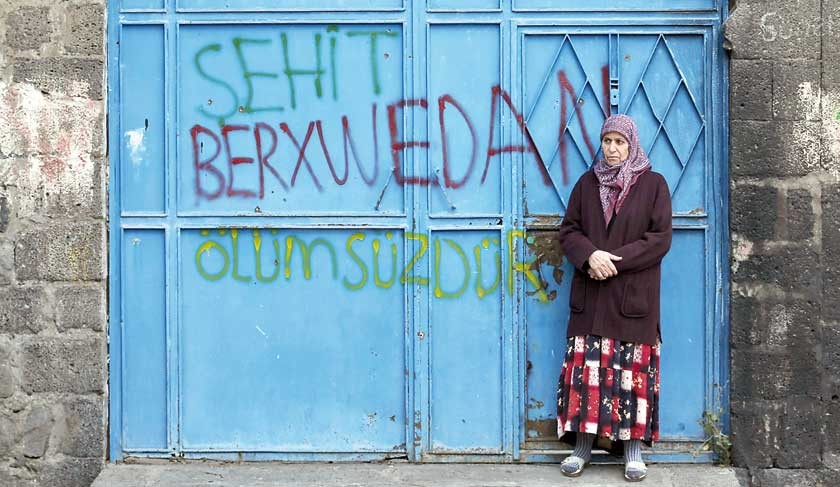 ŞEHÎT
BERXWEDAN
ÖLÜMSÜZDÜR